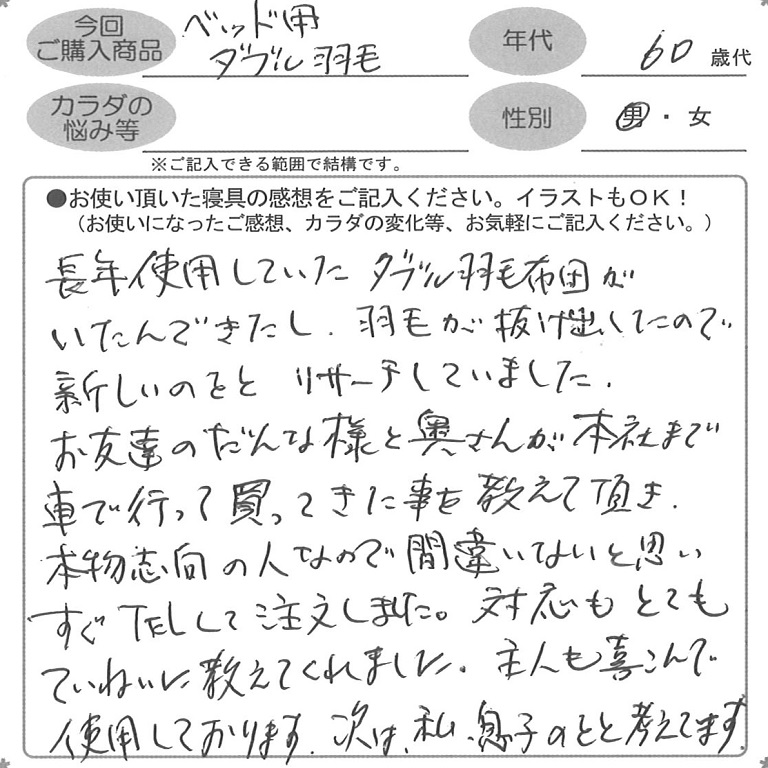 今回
ご購入商品
ベッド用
ダブル羽毛
年代
60 歳代
カラダの
悩み等
性別
男・女
※ご記入できる範囲で結構です。
●お使い頂いた寝具の感想をご記入ください。イラストもOK！
（お使いになったご感想、カラダの変化等、お気軽にご記入ください。）
長年使用していた ダブル羽毛布団が
いたんできたし、羽毛が抜け出してたので
新しいのをと リサーチしていました。
お友達のだんな様と奥さんが本社まで
車で行って買ってきた事を教えて頂き、
本物志向の人なので間違いないと思い
すぐTELして注文しました。対応もとても
ていねいに教えてくれました。主人も喜こんで
使用しております。次は、私、息子のもと考えてます。